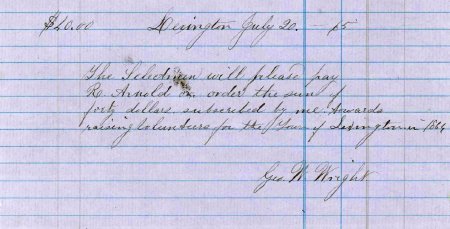 $40.00 Lexington July 20. — 65
The Selectmen will please pay
R. Arnold or order the sum of
forty dollars subscribed by me towards
raising Volunteers for the Town of Lexington in 1864
Geo. W. Wright